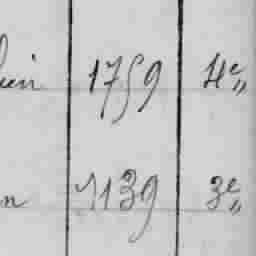 1759 4e„
1139 3e„